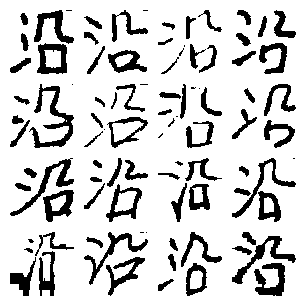 沿沿沿沿
沿沿沿沿
沿沿沿沿
沿沿沿沿